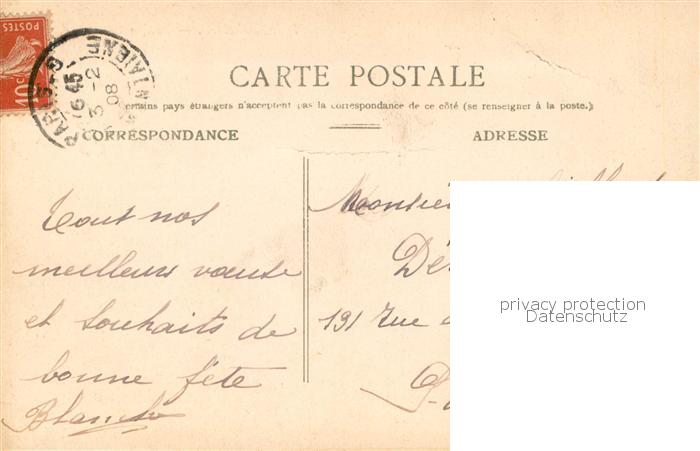 POSTES
10c
PARIS
16 45
3 - 2
08
CARTE POSTALE
ertains pays étrangers n'acceptent pas la correspondance de ce côté (se renseigner à la poste.)
CORRESPONDANCE
ADRESSE
Tout nos
meilleurs vœuse
et souhaits de
bonne fête
Blanche
Monsie
Dé
131 Rue
P
privacy protection
Datenschutz